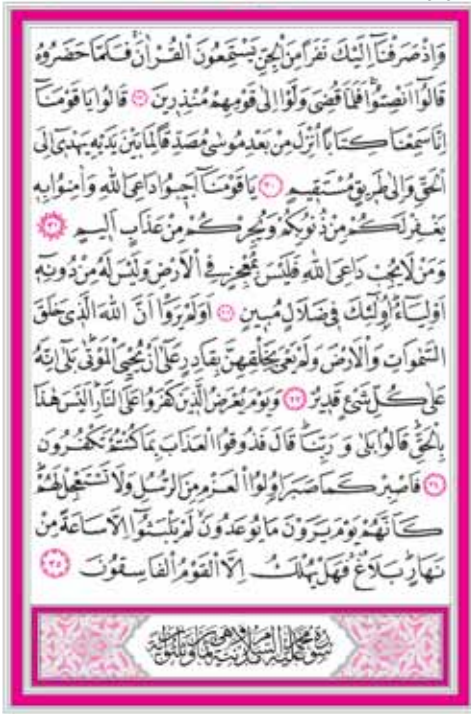 وَاِذْ صَرَفْنَٓا اِلَيْكَ نَفَرًا مِنَ الْجِنِّ يَسْتَمِعُونَ الْقُرْاٰنَۚ فَلَمَّا حَضَرُوهُ
قَالُٓوا اَنْصِتُواۚ فَلَمَّا قُضِيَ وَلَّوْا اِلٰى قَوْمِهِمْ مُنْذِرٖينَ ﴿٢٩﴾ قَالُوا يَا قَوْمَنَٓا
اِنَّا سَمِعْنَا كِتَابًا اُنْزِلَ مِنْ بَعْدِ مُوسٰى مُصَدِّقًا لِمَا بَيْنَ يَدَيْهِ يَهْدٖٓي اِلَى
الْحَقِّ وَاِلٰى طَرٖيقٍ مُسْتَقٖيمٍ ﴿٣٠﴾ يَا قَوْمَنَٓا اَجٖيبُوا دَاعِيَ اللّٰهِ وَاٰمِنُوا بِهٖ
يَغْفِرْ لَكُمْ مِنْ ذُنُوبِكُمْ وَيُجِرْكُمْ مِنْ عَذَابٍ اَلٖيمٍ ﴿٣١﴾
وَمَنْ لَا يُجِبْ دَاعِيَ اللّٰهِ فَلَيْسَ بِمُعْجِزٍ فِي الْاَرْضِ وَلَيْسَ لَهُ مِنْ دُونِهٖٓ
اَوْلِيَٓاءُۜ اُو۬لٰٓئِكَ فٖي ضَلَالٍ مُبٖينٍ ﴿٣٢﴾ اَوَلَمْ يَرَوْا اَنَّ اللّٰهَ الَّذٖي خَلَقَ
السَّمٰوَاتِ وَالْاَرْضَ وَلَمْ يَعْيَ بِخَلْقِهِنَّ بِقَادِرٍ عَلٰٓى اَنْ يُحْيِيَ الْمَوْتٰىۜ بَلٰٓى اِنَّهُ
عَلٰى كُلِّ شَيْءٍ قَدٖيرٌ ﴿٣٣﴾ وَيَوْمَ يُعْرَضُ الَّذٖينَ كَفَرُوا عَلَى النَّارِۜ اَلَيْسَ هٰذَا
بِالْحَقِّۜ قَالُوا بَلٰى وَرَبِّنَاۜ قَالَ فَذُوقُوا الْعَذَابَ بِمَا كُنْتُمْ تَكْفُرُونَ
﴿٣٤﴾ فَاصْبِرْ كَمَا صَبَرَ اُو۬لُوا الْعَزْمِ مِنَ الرُّسُلِ وَلَا تَسْتَعْجِلْ لَهُمْۜ
كَاَنَّهُمْ يَوْمَ يَرَوْنَ مَا يُوعَدُونَۙ لَمْ يَلْبَثُٓوا اِلَّا سَاعَةً مِنْ
نَهَارٍۜ بَلَاغٌۚ فَهَلْ يُهْلَكُ اِلَّا الْقَوْمُ الْفَاسِقُونَ ﴿٣٥﴾
سورة محمد عليه السلام مدنية وهي ثمان وثلاثون آية